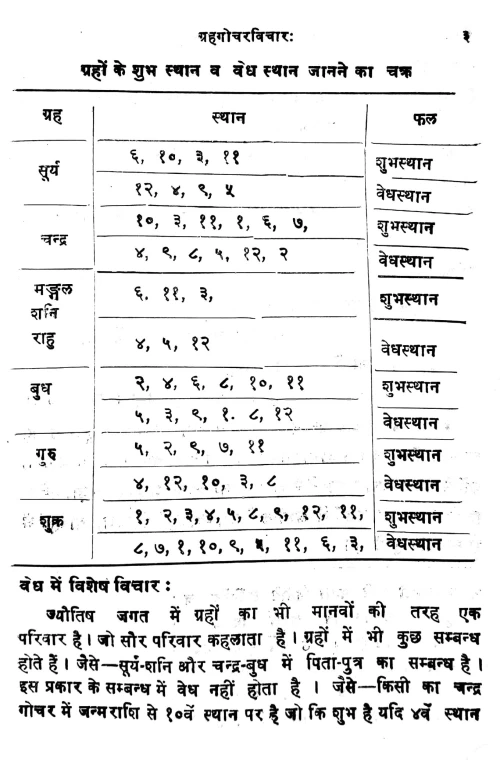 ग्रहगोचरविचारः ३
ग्रहों के शुभ स्थान व वेध स्थान जानने का चक्र
ग्रह स्थान फल
सूर्य ६, १०, ३, ११ शुभस्थान
१२, ४, ९, ५ वेधस्थान
चन्द्र १०, ३, ११, १, ६, ७, शुभस्थान
४, ९, ८, ५, १२, २ वेधस्थान
मङ्गल ६. ११, ३, शुभस्थान
शनि
राहु ४, ५, १२ वेधस्थान
बुध २, ४, ६, ८, १०, ११ शुभस्थान
५, ३, ९, १. ८, १२ वेधस्थान
गुरु ५, २, ९, ७, ११ शुभस्थान
४, १२, १०, ३, ८ वेधस्थान
शुक्र १, २, ३, ४, ५, ८, ९, १२, ११, शुभस्थान
८, ७, १, १०, ९, ५, ११, ६, ३, वेधस्थान
वेध में विशेष विचार :
ज्यौतिष जगत में ग्रहों का भी मानवों की तरह एक
परिवार है। जो सौर परिवार कहलाता है। ग्रहों में भी कुछ सम्बन्ध
होते हैं। जैसे—सूर्य-शनि और चन्द्र-बुध में पिता-पुत्र का सम्बन्ध है।
इस प्रकार के सम्बन्ध में वेध नहीं होता है । जैसे—किसी का चन्द्र
गोचर में जन्मराशि से १०वें स्थान पर है जो कि शुभ है यदि ४वें स्थान